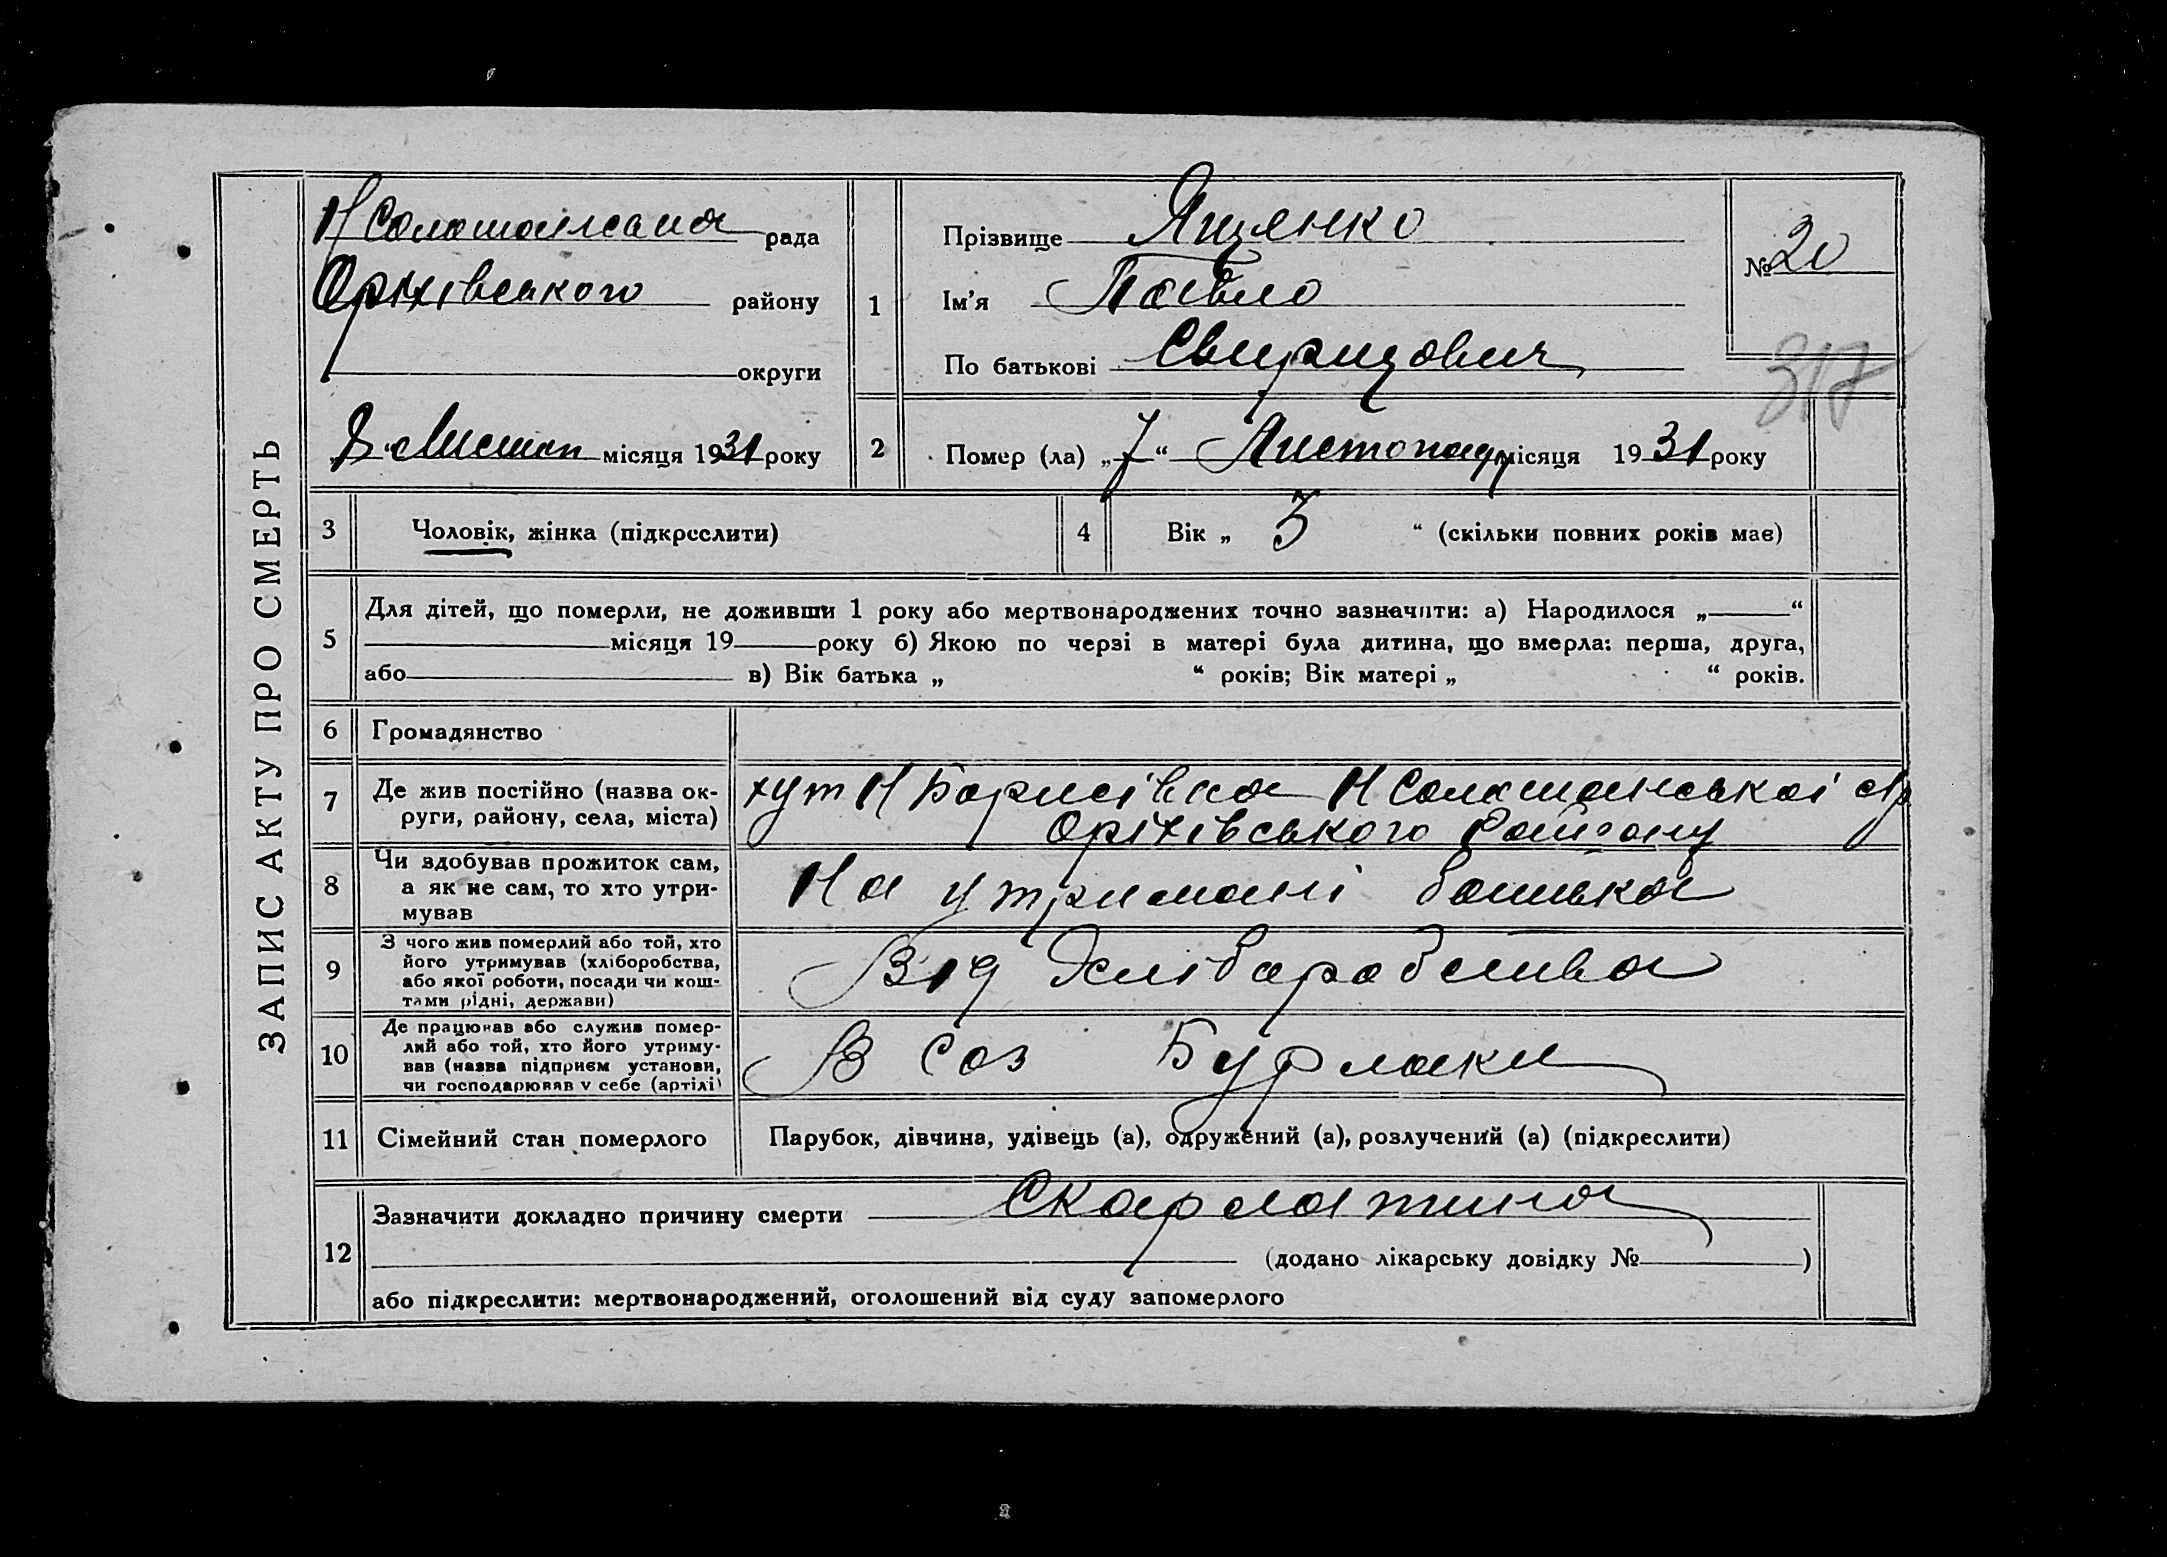 ЗАПИС АКТУ ПРО СМЕРТЬ
рада
Оріхівського району
округи
8 Листоп місяця 1931 року
1
Прізвище Ященко
Ім'я Павло
По батькові Свиридович
№ 20
317
2
Помер (ла) „7“ Листопаду місяця 1931 року
3
Чоловік, жінка (підкреслити)
4
Вік „ 3 “ (скільки повних років має)
5
Для дітей, що померли, не доживши 1 року або мертвонароджених точно зазначити: а) Народилося „ “
місяця 19 року б) Якою по черзі в матері була дитина, що вмерла: перша, друга,
або в) Вік батька „ “ років; Вік матері „ “ років.
6
Громадянство
7
Де жив постійно (назва ок-
руги, району, села, міста)
хут Н Борисівка Н Солошанської с/р
Оріхівського району
8
Чи здобував прожиток сам,
а як не сам, то хто утри-
мував
На утримані батька
9
З чого жив померлий або той, хто
його утримував (хліборобства,
або якої роботи, посади чи кош-
тами рідні, держави)
Від Хліборобства
10
Де працював або служив помер-
лий або той, хто його утриму-
вав (назва підприєм установи,
чи господарював у себе (артілі)
В Соз Бурлаки
11
Сімейний стан померлого
Парубок, дівчина, удівець (а), одружений (а), розлучений (а) (підкреслити)
12
Зазначити докладно причину смерти Скарлатина
(додано лікарську довідку № )
або підкреслити: мертвонароджений, оголошений від суду запомерлого